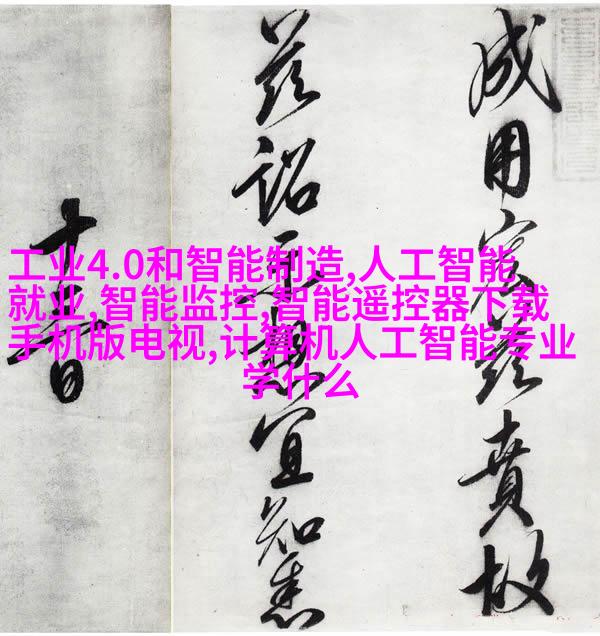 工业4.0和智能制造,人工智能
就业,智能监控,智能遥控器下载
手机版电视,计算机人工智能专业
学什么
成用宏茲賁故
茲詔示想宜知悉
十日